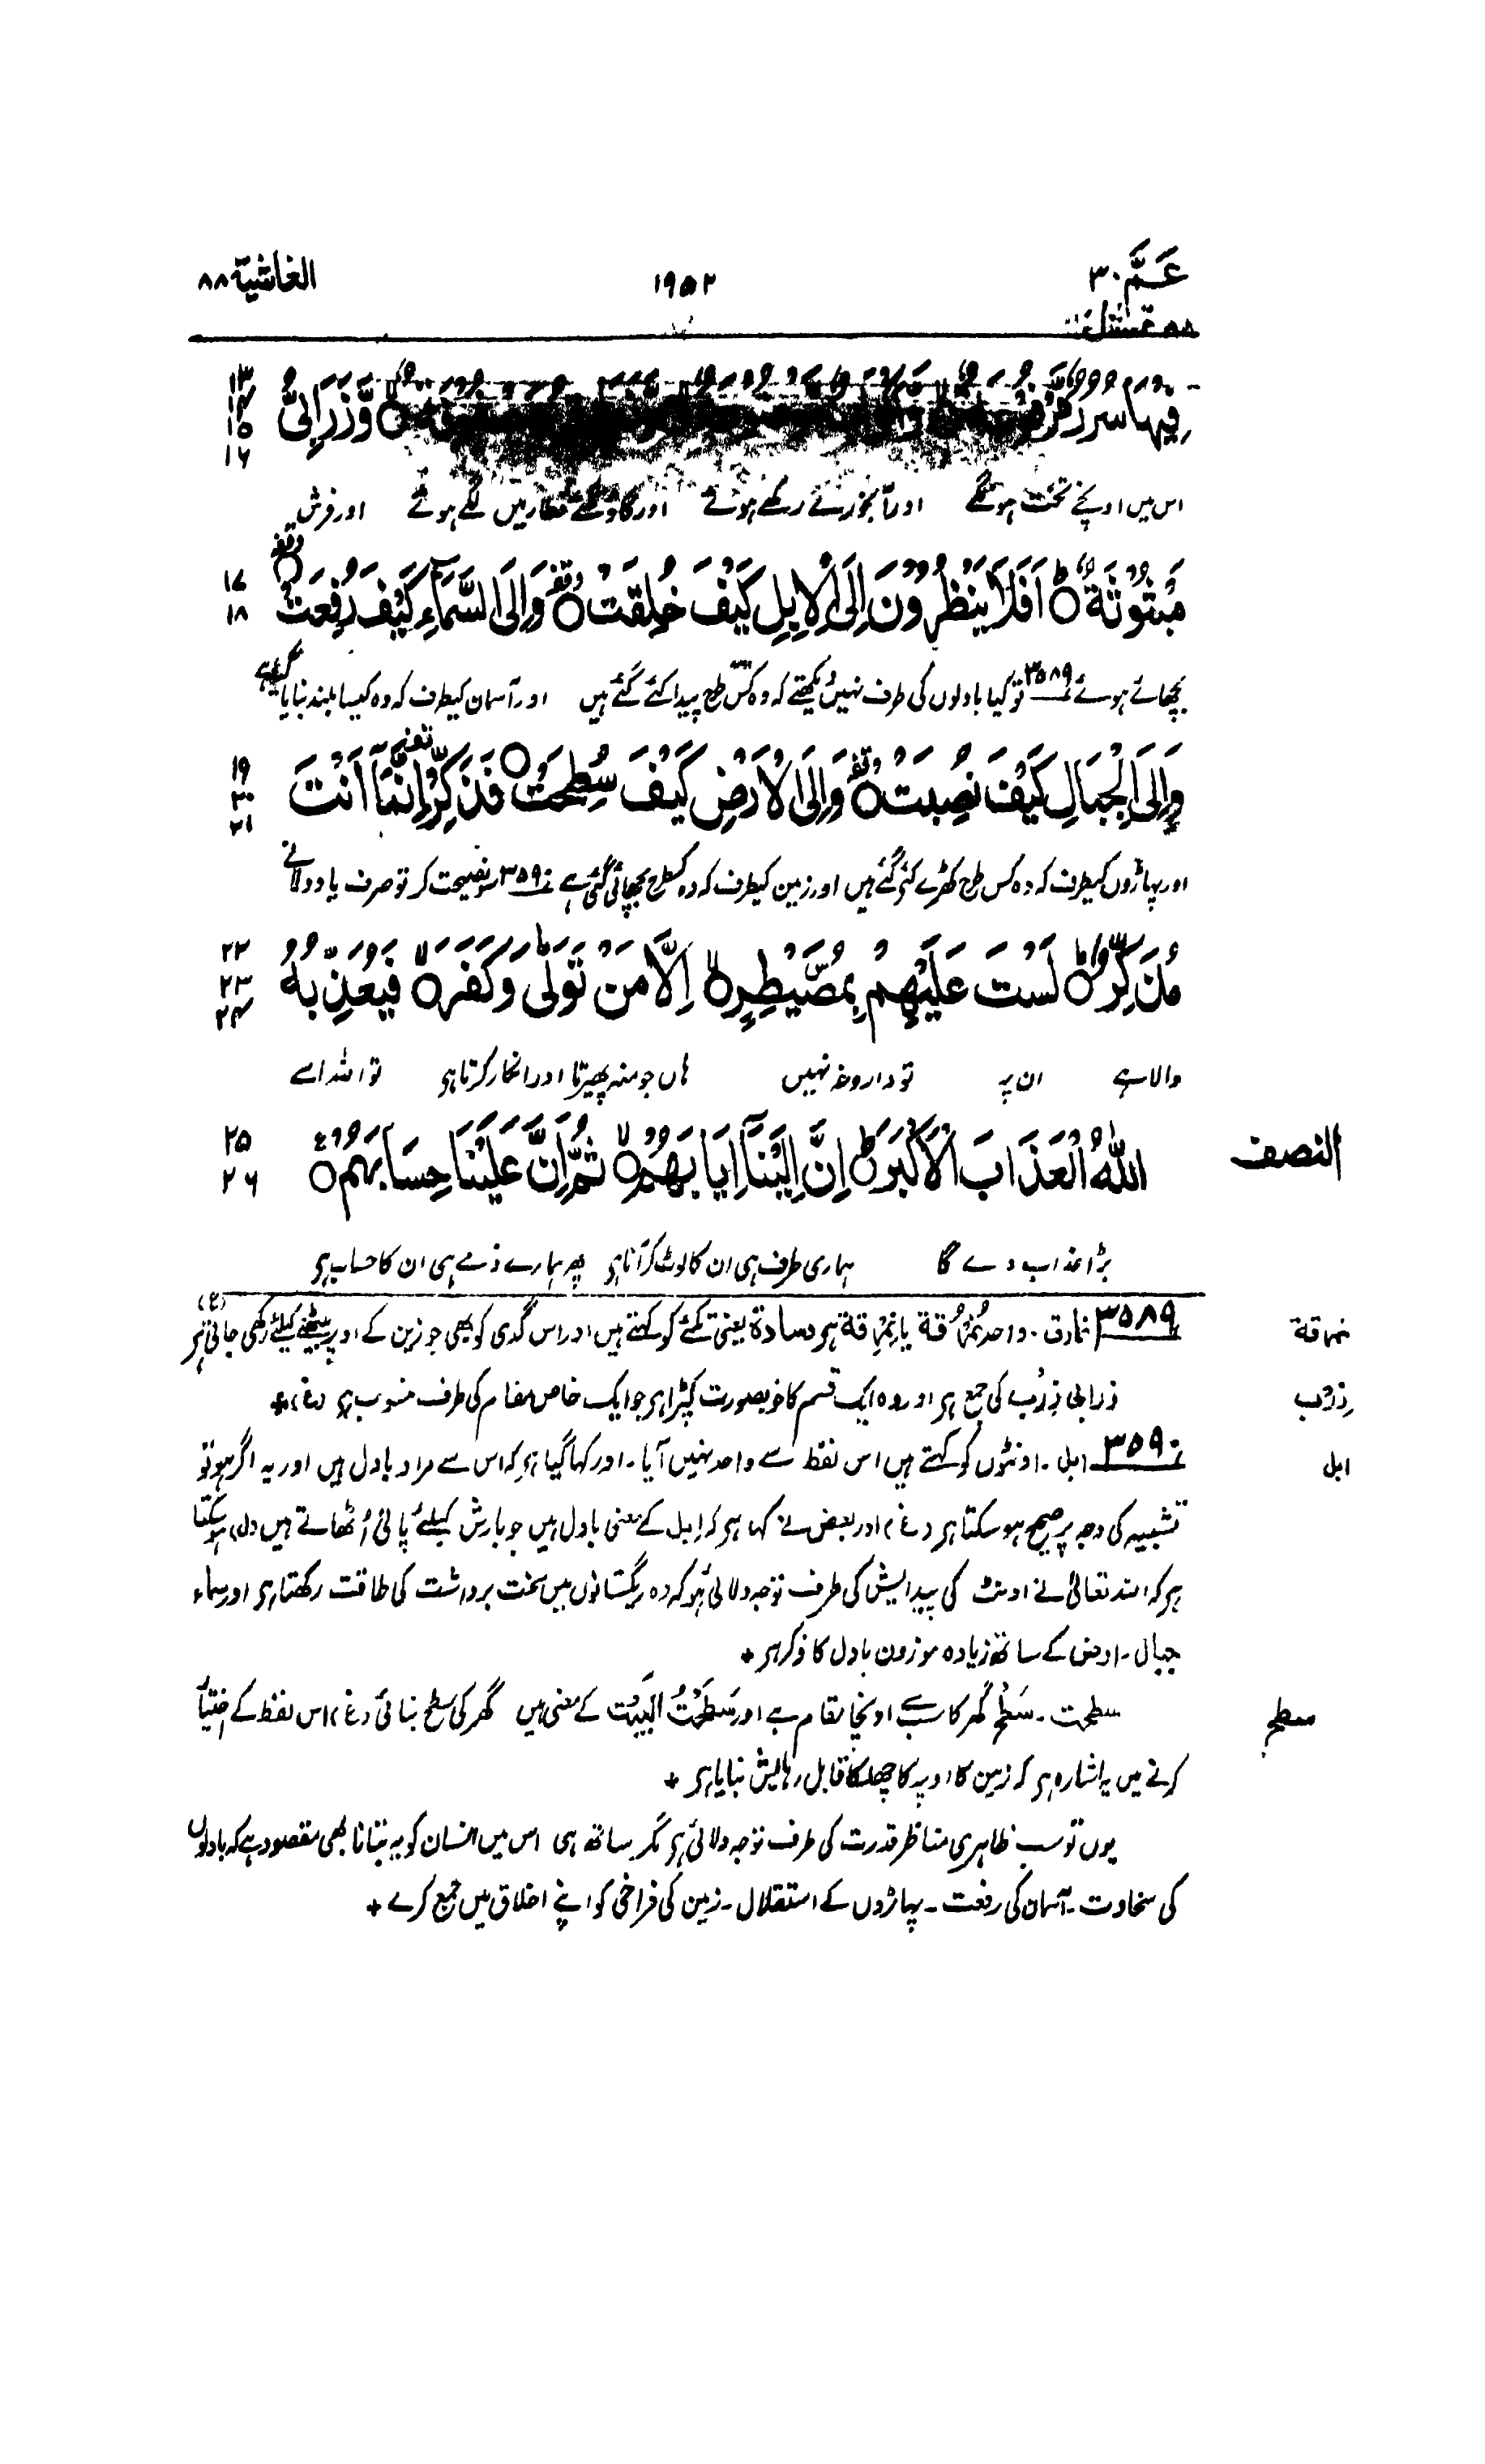 عَمَّ ٣٠
١٩٥٢
الغاشية ٨٨
فِيْهَا سُرُرٌ مَّرْفُوْعَةٌ وَّزَرَابِيُّ
١٣
١٤
١٥
١٦
اس میں اونچے تخت ہونگے اور آبخورے رکھے ہوئے اور گاؤتکئے قطار میں لگے ہوئے اور فرش
مَبْثُوْثَةٌ ؕ اَفَلَا يَنْظُرُوْنَ اِلَى الْاِبِلِ كَيْفَ خُلِقَتْ وَاِلَى السَّمَآءِ كَيْفَ رُفِعَتْ
١٧
١٨
بچھائے ہوئے ٣٥٨٩ تو کیا بادلوں کی طرف نہیں دیکھتے کہ وہ کس طرح پیدا کئے گئے ہیں اور آسمان کیطرف کہ وہ کیسا بلند بنایا گیا ہے
وَاِلَى الْجِبَالِ كَيْفَ نُصِبَتْ وَاِلَى الْاَرْضِ كَيْفَ سُطِحَتْ فَذَكِّرْ اِنَّمَآ اَنْتَ
١٩
٢٠
٢١
اور پہاڑوں کیطرف کہ وہ کس طرح کھڑے کئے گئے ہیں اور زمین کیطرف کہ وہ کسطرح بچھائی گئی ہے ٣٥٩٠ سو نصیحت کر تو صرف یاد دلانے
مُذَكِّرٌ ؕ لَسْتَ عَلَيْهِمْ بِمُصَّيْطِرٍ ۙ اِلَّا مَنْ تَوَلّٰى وَكَفَرَ ۙ فَيُعَذِّبُهُ
٢٢
٢٣
٢٤
والا ہے ان پر تو داروغہ نہیں ہاں جو منہ پھیرتا اور انکار کرتا ہو تو اللہ اسے
اللّٰهُ الْعَذَابَ الْاَكْبَرَ ؕ اِنَّ اِلَيْنَآ اِيَابَهُمْ ۙ ثُمَّ اِنَّ عَلَيْنَا حِسَابَهُمْ
٢٥
٢٦
النصف
بڑا عذاب دے گا ہماری طرف ہی ان کا لوٹ کر آنا ہو پھر ہمارے ذمے ہی ان کا حساب ہو
٣٥٨٩ نمارق ۔ واحد نُمْرُقة یا نِمْرِقة ہو وسادة یعنی تکئے کو کہتے ہیں اور اس گدی کو بھی جو زین کے اوپر بیٹھنے کیلئے رکھی جاتی ہو (غ)
نمرقة
زرابی زِرْب کی جمع ہو اور وہ ایک قسم کا خوبصورت کپڑا ہو جو ایک خاص مقام کی طرف منسوب ہو (غ) +
زِرْب
٣٥٩٠ ابل ۔ اونٹوں کو کہتے ہیں اس لفظ سے واحد نہیں آیا ۔ اور کہا گیا ہو کہ اس سے مراد بادل ہیں اور یہ اگر ہو تو
ابل
تشبیہ کی وجہ پر صحیح ہو سکتا ہو (غ) اور بعض نے کہا ہو کہ اِبل کے معنی بادل ہیں جو بارش کیلئے پانی اُٹھاتے ہیں (ل) ہو سکتا
ہو کہ اللہ تعالیٰ نے اونٹ کی پیدایش کی طرف توجہ دلائی ہو کہ وہ ریگستانوں میں سخت برداشت کی طاقت رکھتا ہو اور سماء
جبال ۔ ارض کے ساتھ زیادہ موزون بادل کا ذکر ہو +
سطحت ۔ سَطْح گھر کا سب سے اونچا مقام ہے اور سَطَحْتُ الْبَيْتَ کے معنی ہیں گھر کی سطح بنائی (غ) اس لفظ کے اختیار
سطح
کرنے میں یہ اشارہ ہو کہ زمین کا اوپر کا چھلکا قابل رہایش بنایا ہو +
یوں تو سب ظاہری مناظر قدرت کی طرف توجہ دلائی ہو مگر ساتھ ہی اس میں انسان کو یہ بتانا بھی مقصود ہے کہ بادلوں
کی سخاوت ۔ آسمان کی رفعت ۔ پہاڑوں کے استقلال ۔ زمین کی فراخی کو اپنے اخلاق میں جمع کرے +